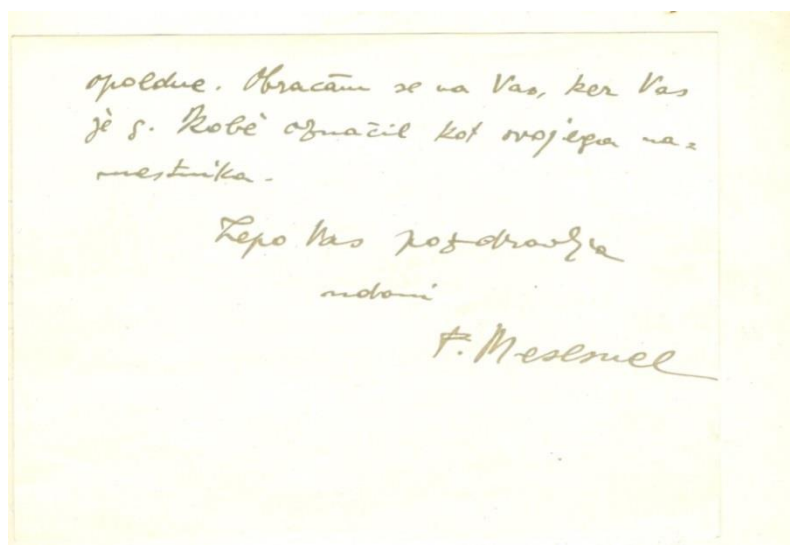 opoldne. Obračam se na Vas, ker Vas
je g. Kobè označil kot svojega na=
mestnika.
Lepo Vas pozdravlja
udani
F. Mesesnel